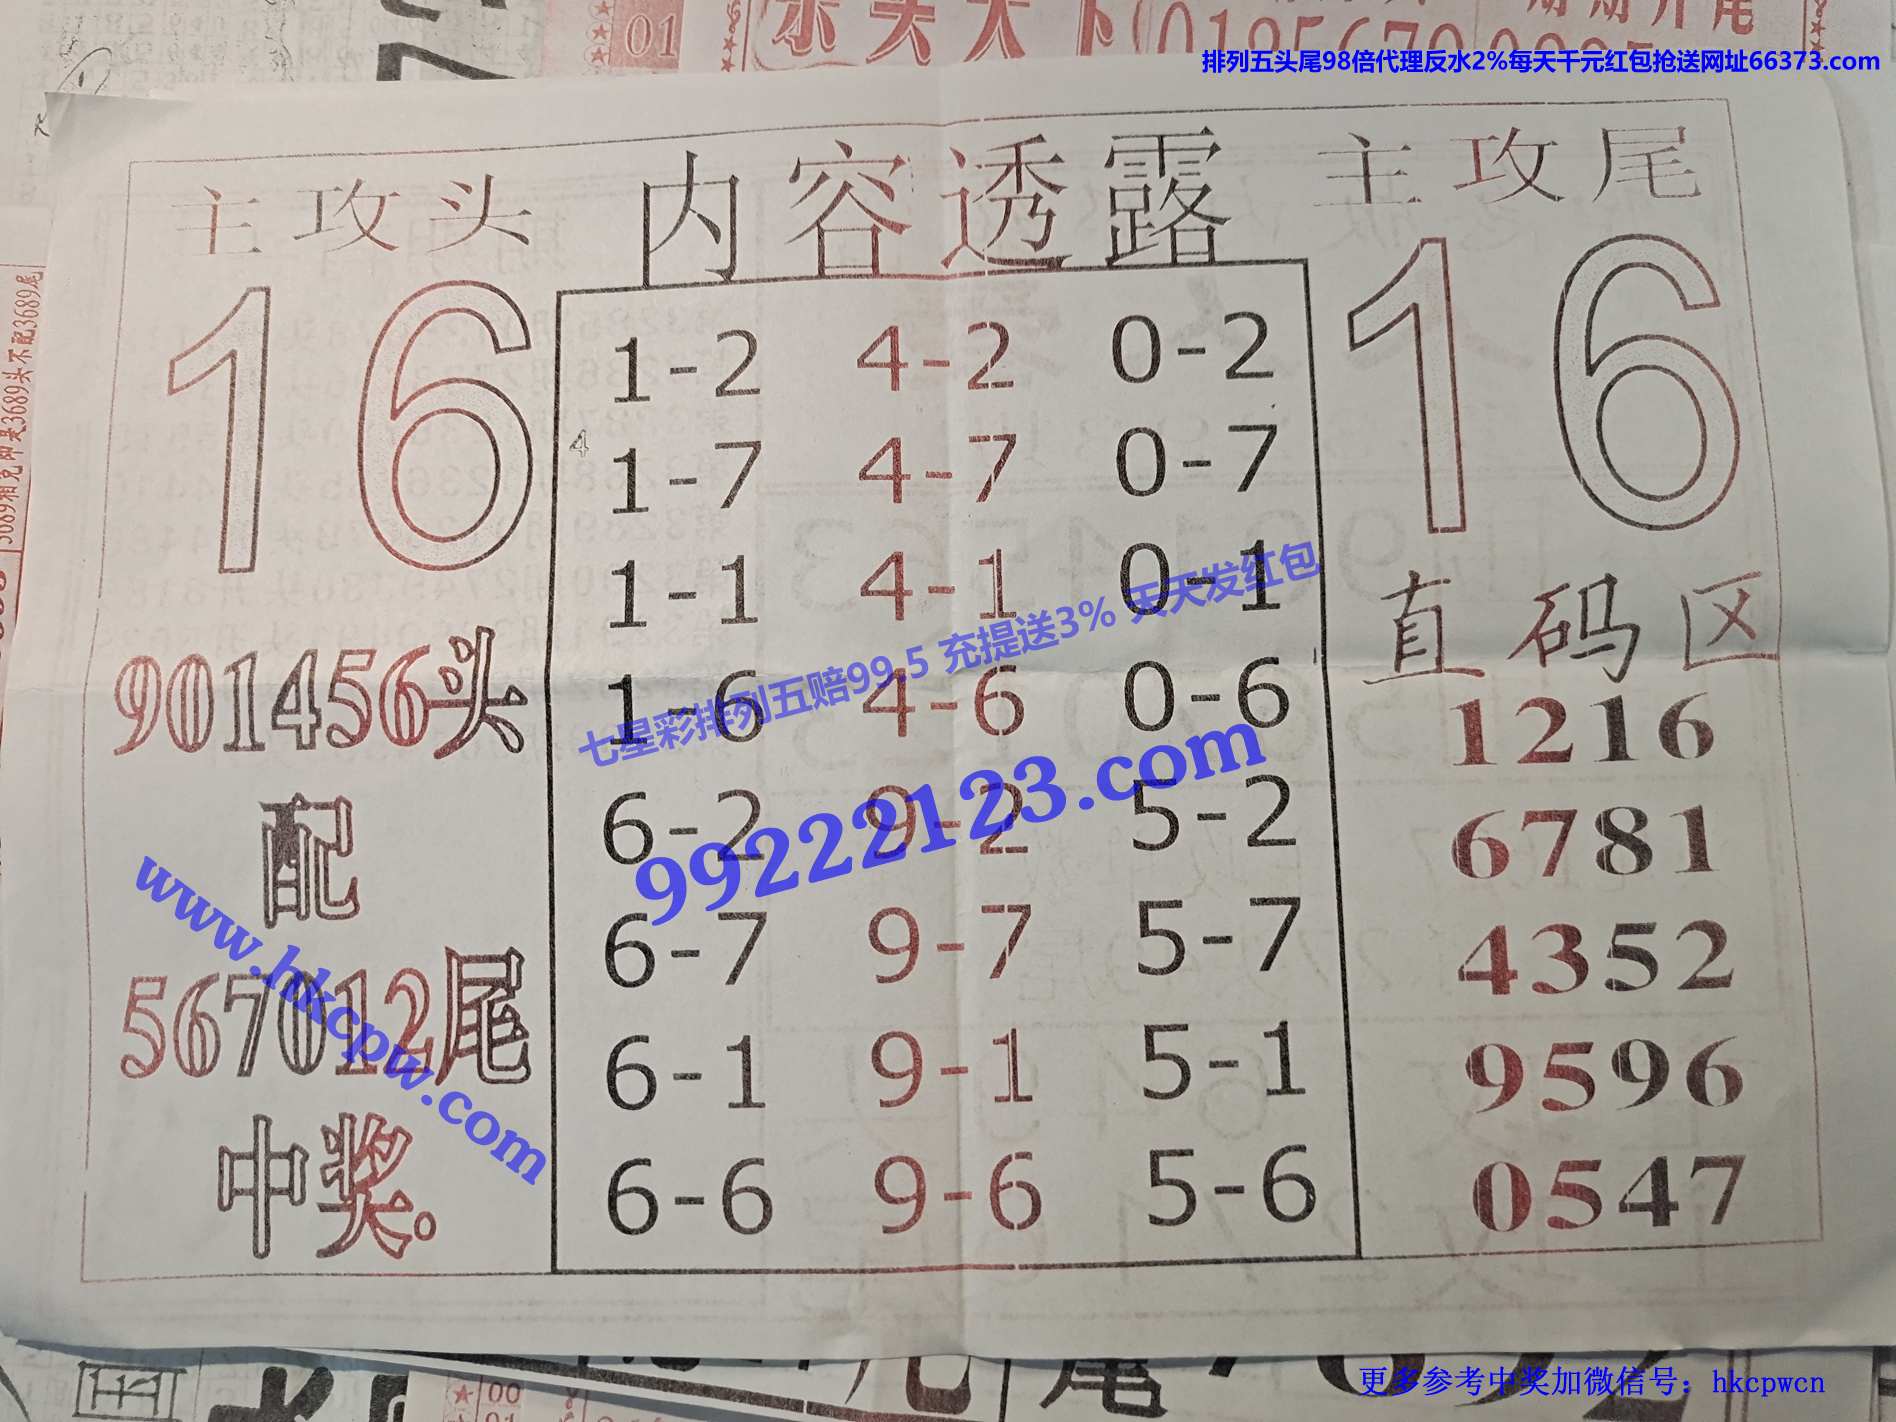 01
排列五头尾98倍代理反水2%每天千元红包抢送网址66373.com
内容透露
主攻头
主攻尾
16
16
1-2 4-2 0-2
4
1-7 4-7 0-7
1-1 4-1 0-1
1-6 4-6 0-6
6-2 9-2 5-2
6-7 9-7 5-7
6-1 9-1 5-1
6-6 9-6 5-6
901456头
配
567012尾
中奖。
直码区
1216
6781
4352
9596
0547
七星彩排列五赔99.5 充提送3% 天天发红包
99222123.com
www.hkcpw.com
3689相克即是3689头不配3689尾
00
01
更多参考中奖加微信号：hkcpwcn